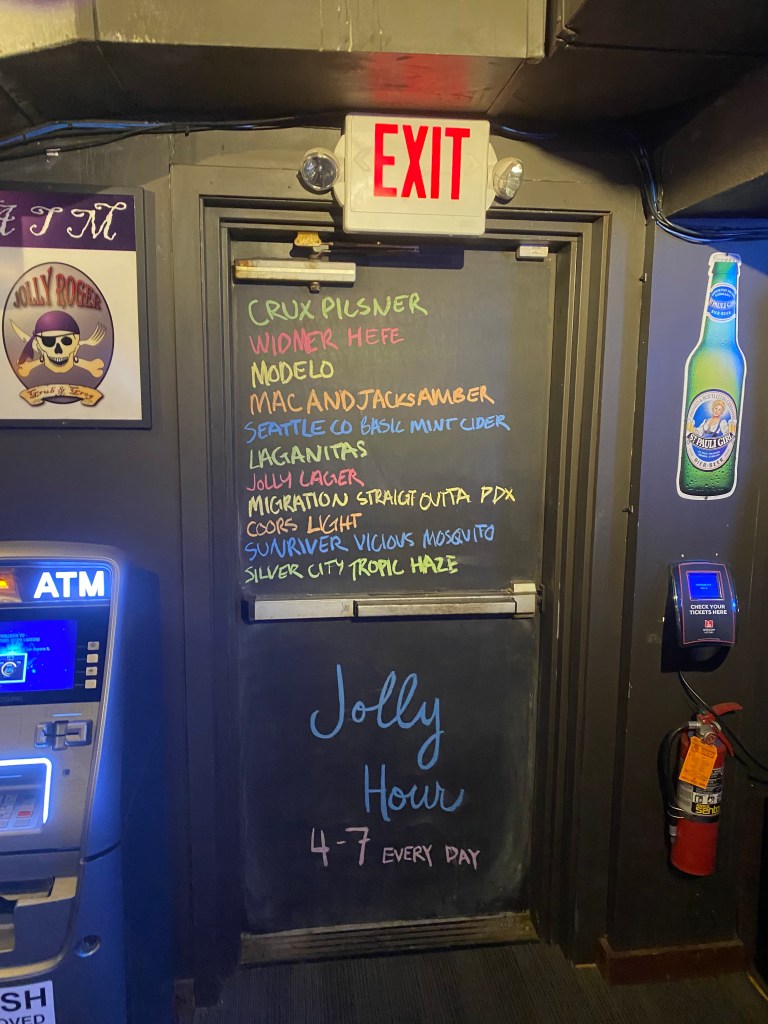 EXIT
ATM
JOLLY ROGER
Grub & Grog
CRUX PILSNER
WIDMER HEFE
MODELO
MAC AND JACKS AMBER
SEATTLE CO BASIC MINT CIDER
LAGANITAS
JOLLY LAGER
MIGRATION STRAIGT OUTTA PDX
COORS LIGHT
SUNRIVER VICIOUS MOSQUITO
SILVER CITY TROPIC HAZE
Jolly
Hour
4-7 EVERY DAY
ST PAULI GIRL
ST. PAULI GIRL
BIER·BEER
CHECK YOUR
TICKETS HERE
ATM